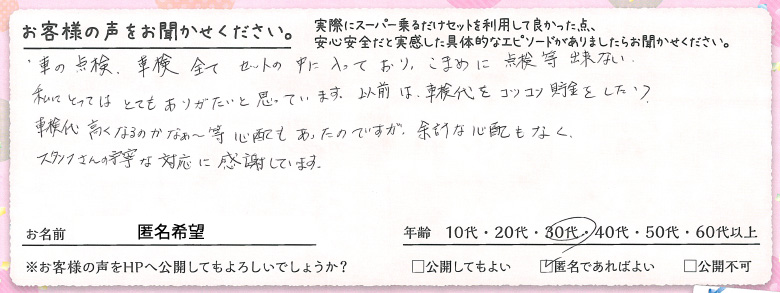 お客様の声をお聞かせください。
実際にスーパー乗るだけセットを利用して良かった点、
安心安全だと実感した具体的なエピソードがありましたらお聞かせください。
・車の点検、車検 全て セットの 中に 入って おり、こまめに 点検 等 出来ない
私にとっては とても ありがたいと思っています。以前は、車検代を コツコツ 貯金を したり?
車検代 高くなるのかなぁ〜 等 心配も あったのですが、余計な 心配も なく、
スタッフさんの丁寧な 対応に 感謝しています。
お名前 匿名希望
年齢 10代・20代・30代・40代・50代・60代以上
※お客様の声をHPへ公開してもよろしいでしょうか？ □公開してもよい ☑匿名であればよい □公開不可